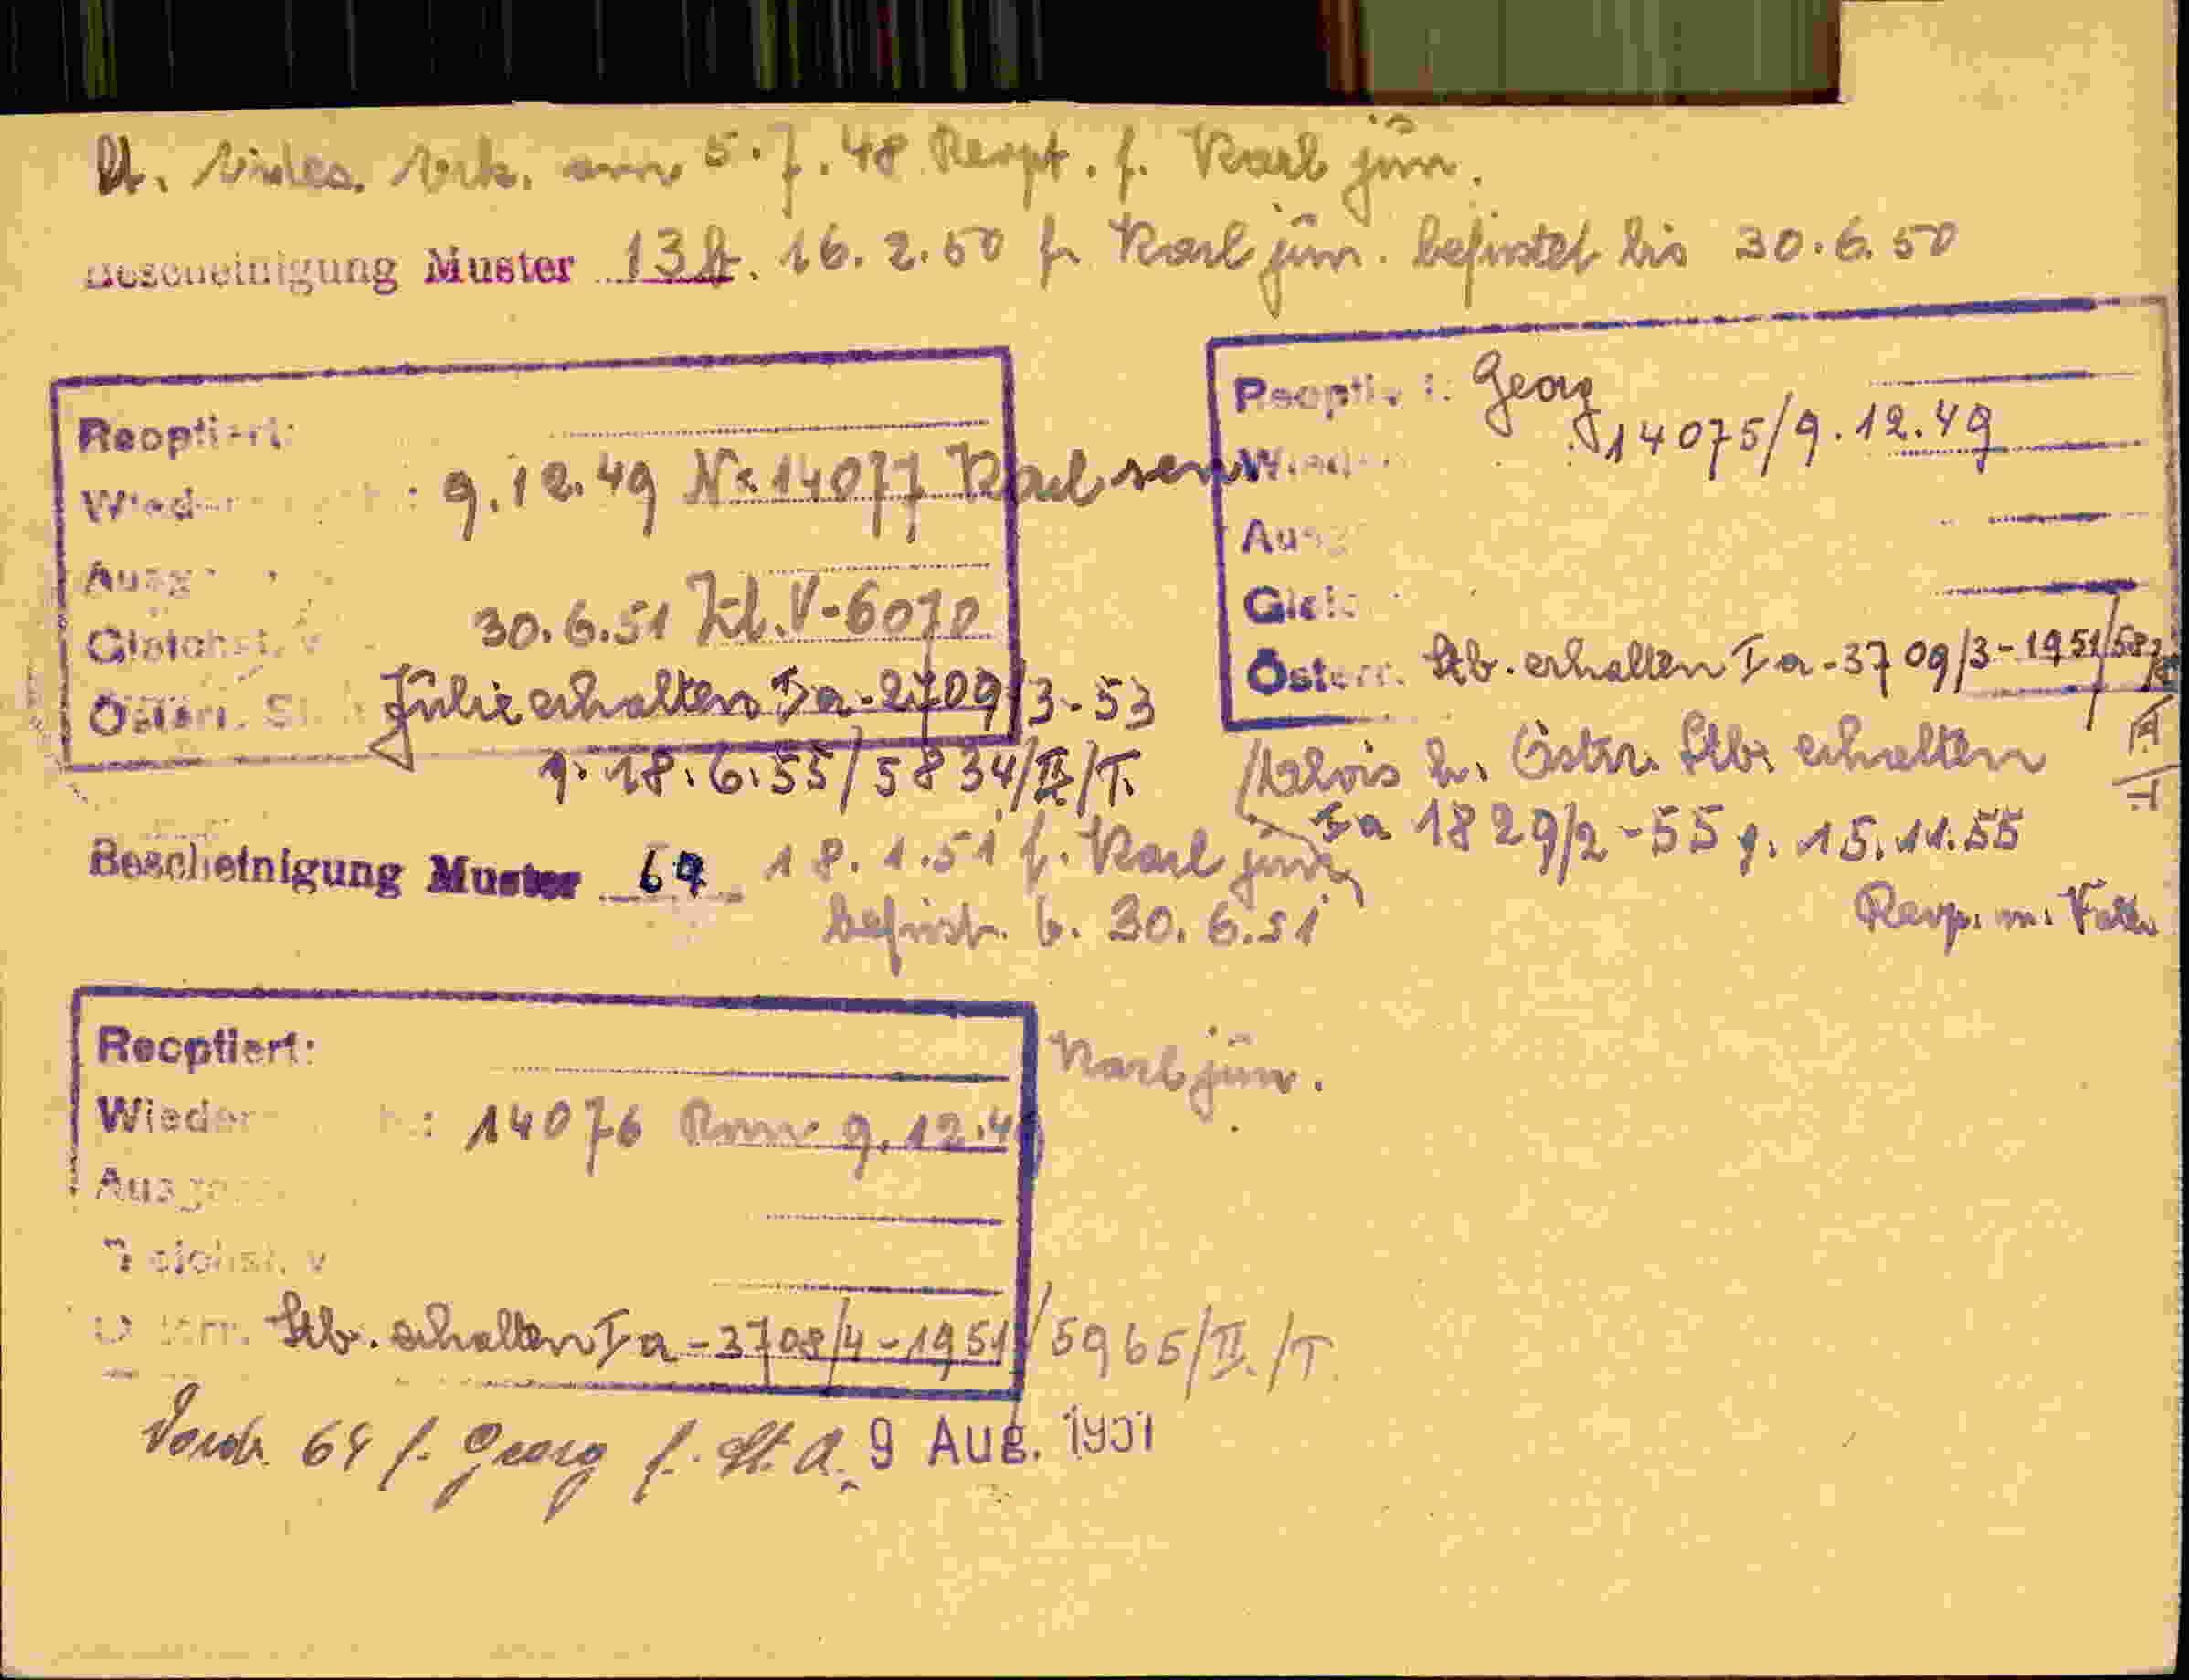 lt. am 5.7.48 Reopt. f. Karl jun.
Bescheinigung Muster 13 16.2.50 f. Karl jun. befristet bis 30.6.50
Reoptiert:
Wieder : 9.12.49 Nr. 14077 Karl sen
Ausg
Gleichst. v 30.6.51 Zl. V-6070
Österr. St Julie erhalten Ia-2709/3-53
g. 18.6.55/5834/II/T.
Georg
14075/9.12.49
Wied
Ausg
Gleic
Österr. Stb. erhalten Ia-3709/3-1951
Alois h. Östr. Stb. erhalten
Ia 1829/2-55 g. 15.11.55
Bescheinigung Muster 18.1.51 f. Karl jun
befrist. b. 30.6.51
Reop. m. Vater
Reoptiert: Karl jun.
Wieder : 14076 9.12.4
Ausge
Stb. erhalten Ia-3708/4-1951/5965/II./T.
f. Georg f. St. A. 9 Aug. 1951